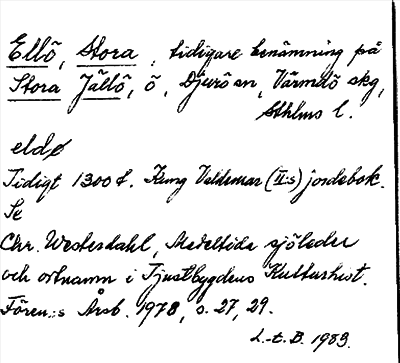 Ellö, Stora, tidigare benämning på
Stora Jällö, ö, Djurö sn, Värmdö skg,
Sthlms l.
eldø
Tidigt 1300 t. Kung Valdemar (II:s) jordebok.
Se
Chr. Westerdahl, Medeltida sjöleder
och ortnamn i Tjustbygdens Kulturhist.
Fören:s Årsb. 1978, s. 27, 29.
L.-E.B. 1983.